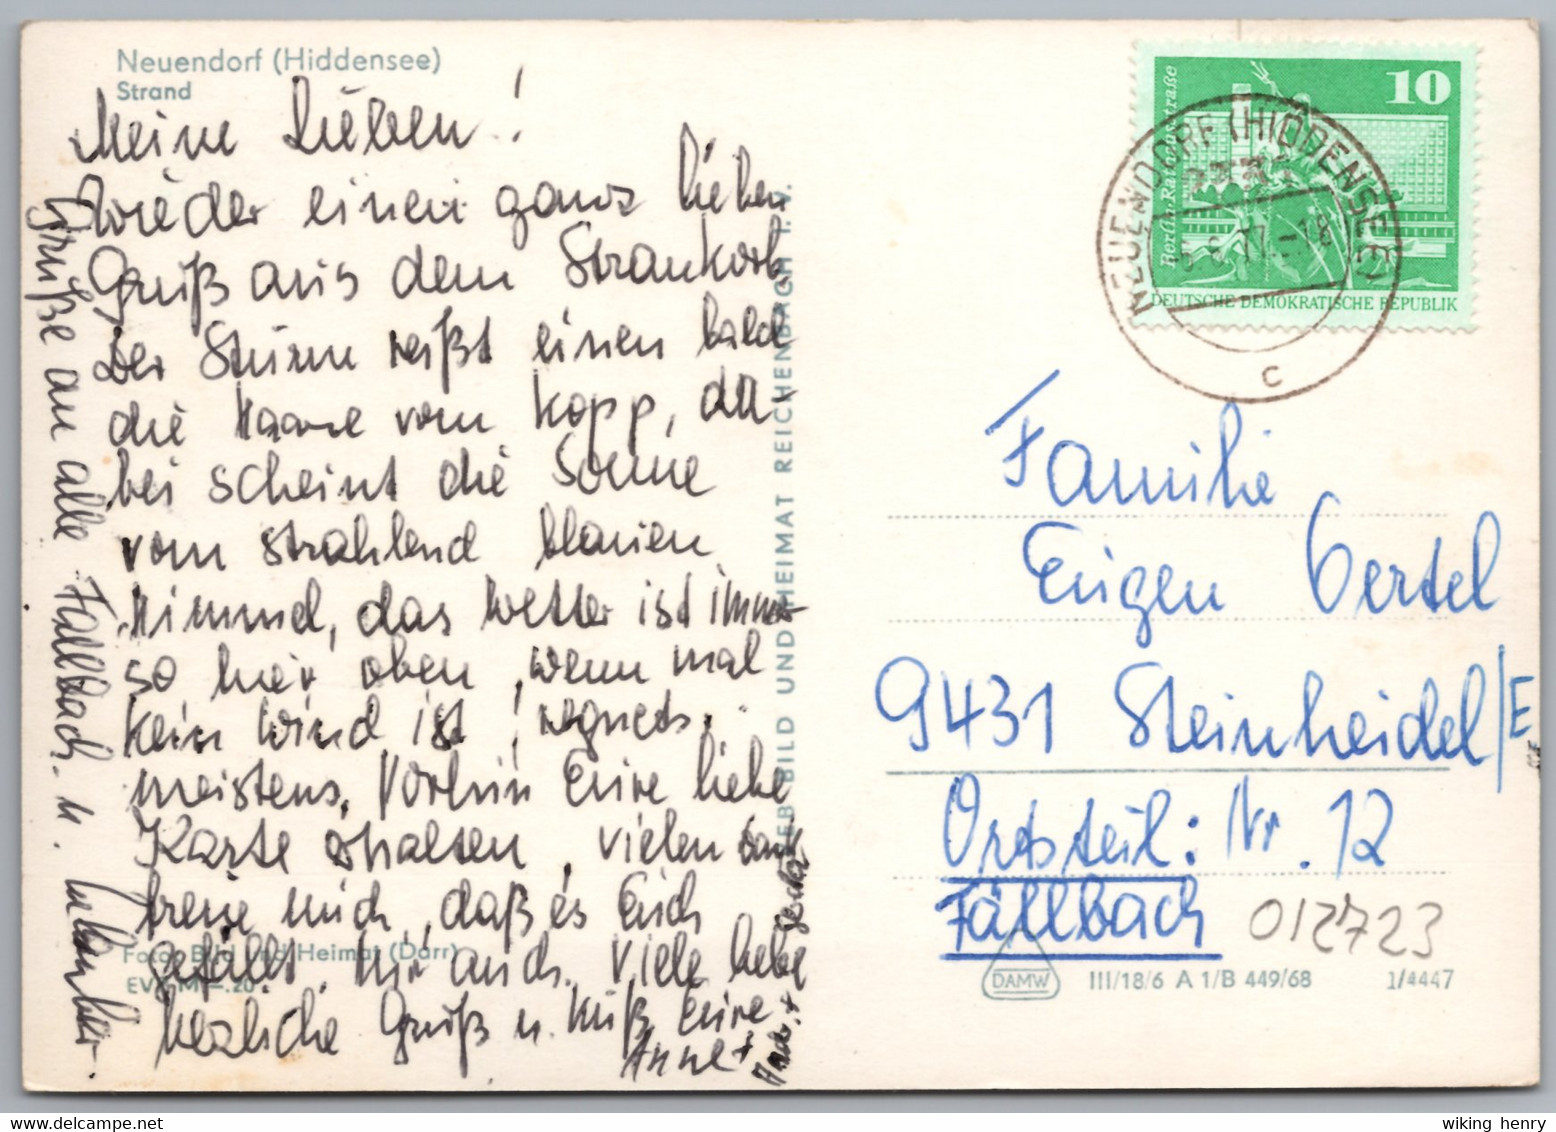 Neuendorf (Hiddensee)
Strand
Meine Lieben!
Wieder einen ganz lieben
Gruß aus dem Strankorb.
Der Sturm reißt einen bald
die Haare vom Kopp, da-
bei scheint die Sonne
vom strahlend blauen
Himmel, das Wetter ist immer
so hier oben, wenn mal
kein Wind ist, regnets
meistens. Vorhin Eure liebe
Karte erhalten, vielen Dank
freue mich, daß es Euch
gefällt. Mir auch. Viele liebe
herzliche Grüß u. Kuß Eure
Anne +
Grüße an alle Fällbach. u.
Foto: Bild und Heimat (Darr)
EVP M -.20
VEB BILD UND HEIMAT REICHENBACH I. V.
10
Berlin, Rathausstraße
DEUTSCHE DEMOKRATISCHE REPUBLIK
NEUENDORF (HIDDENSEE)
c
Familie
Eugen Oertel
9431 Steinheidel/E
Ortsteil: Nr. 12
Fällbach
012723
DAMW
III/18/6 A 1/B 449/68
1/4447
wiking henry